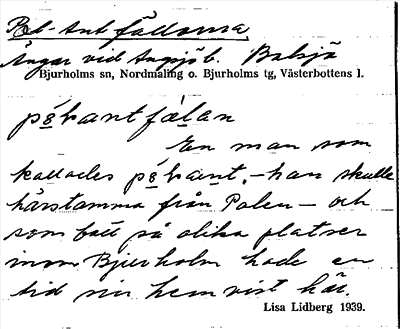 Pol-Ant fällorna
Ängar vid Angsjö b. Balsjö
Bjurholms sn, Nordmaling o. Bjurholms tg, Västerbottens l.
En man som
kallades – han skulle
härstamma från Polen – och
som bott på olika platser
inom Bjurholm hade en
tid sin hemvist här.
Lisa Lidberg 1939.